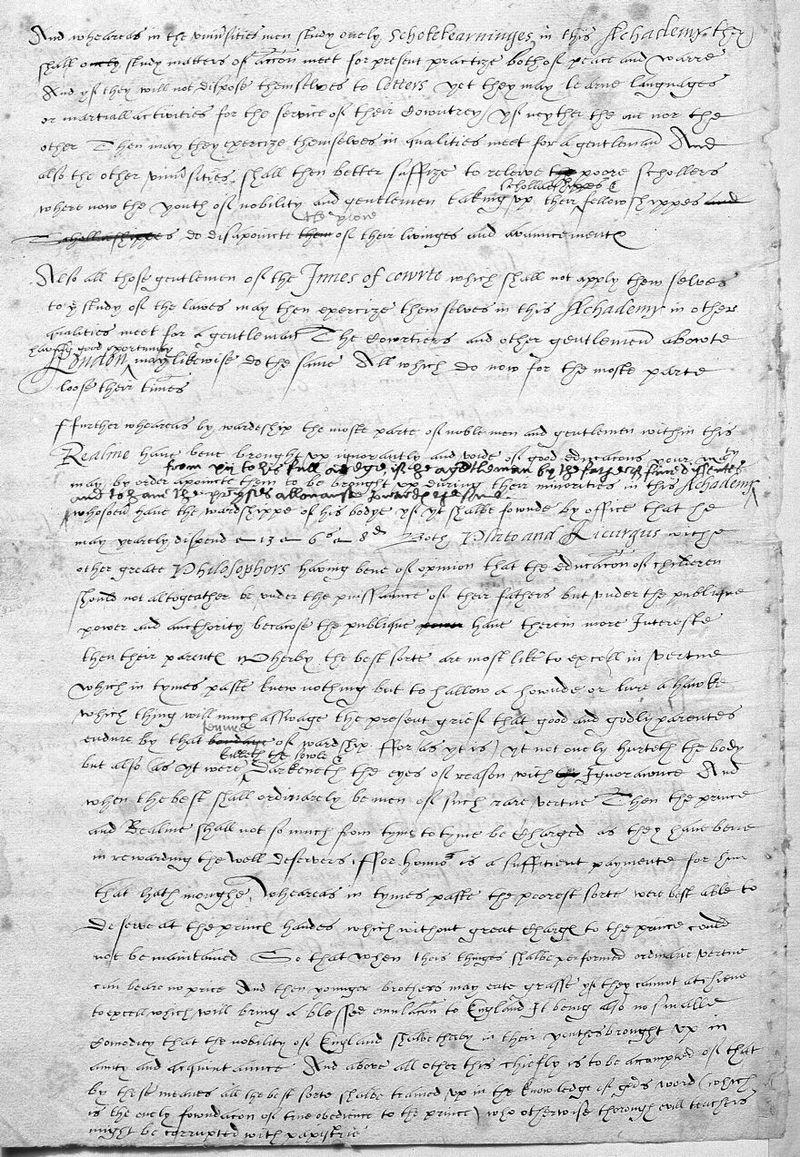 And wheareas in the vniuersities men study onely Schole learninges, in this Achademy they
shall onely study matters of accōn meet for present practize both of peace and warre
And yf they will not dispose themselves to letters yet they may learne languages
or martiall activities for the service of their Cowntrey / yf neyther the one nor the
other Then may they exercize themselves in qualities meet for a gentleman And
also the other vniuersities shall then better suffize to releive poore schollers
schollarshippes &
where now the youth of nobility and gentlemen taking vp their fellowshippes and
the poore
Schollarshippes do disapointe them of their livinges and avauncement
Also all those gentlemen of the Innes of cowrte which shall not apply them selves
to yͤ study of the lawes may then exercize themselves in this Achademy in other
qualities meet for a gentleman The Cowrtiers and other gentlemen abowte
having good oportunity
London may likewise do the same All which do now for the moste parte
loose their times
ffurther wheareas by wardeship the moste parte of noble men and gentlemen within this
Realme have bene brought vp ignorantly and voide of good educacōns your may
from xij to his full adge if he a gentleman by the father
may by order apointe them to be brought vp during their minorities in this Achademy
and to have the allowance
whosoeuer have the wardshippe of his bodye yf yt shalbe fownde by office that he
may yearely dispend 13 6 8 Both Plato and Licurgus with
other greate Philosophors having bene of opinion that the educacōn of children
should not altogeather be vnder the puissaunce of their fathers but vnder the publique
power and aucthority becawse the publique have therein more Intereste
then their parentes Wherby the best sorte are most like to excell in vertue
which in tymes paste knew nothing but to hallow a hownde or lure a hawke
which thing will much asswage the present grief that good and godly parentes
endure by that of wardship ffor (as yt is) yt not onely hurteth the body
killeth the sowle &
but also (as yt were) Darkeneth the eyes of reason with Ignoraunce And
when the best shall ordinarely be men of such rare vertue Then the prince
and Realme shall not so much from tyme to tyme be Charged as they have bene
in rewarding the well deservers, ffor honor is a sufficient paymente for him
that hath inoughe, Wheareas in tymes paste the poorest sorte were best able to
Deserve at the princes handes which without great Charge to the prince could
not be maintained So that when theis thinges shalbe performed ordinarie vertue
can beare no price And then younger brothers may eate grasse yf they cannot atchieve
to excell which will bring a blessed emulacōn to England It being also no smalle
Comodity that the nobility of England shalbe therby in their youthes brought vp in
amity and acquintaunce And above all other this chiefly is to be accompted of that
by these meanes all the best sorte shalbe trained vp in the knowledge of gods word (which
is the onely fowndacōn of true obedience to the prince) who otherwise thorough evill teachers
might be corrupted with papistrie